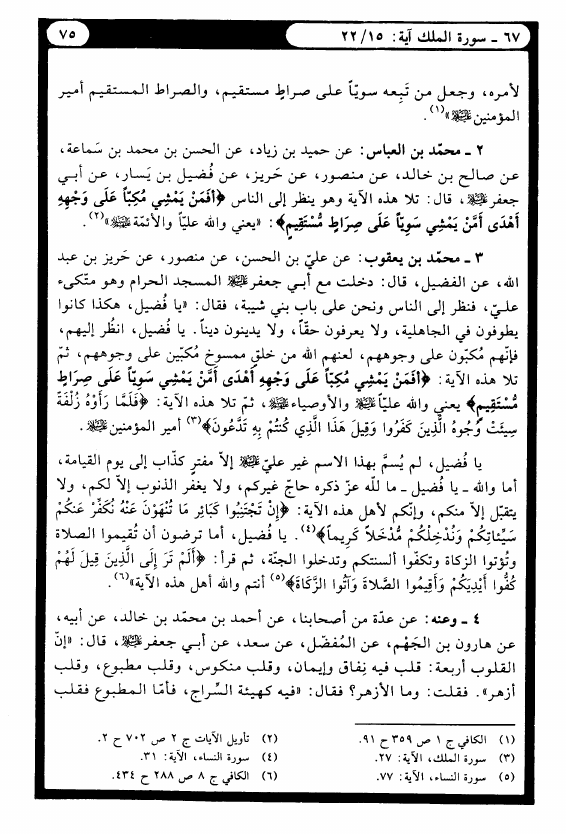 ٦٧ ـ سورة الملك آية: ٢٢/١٥
٧٥
لأمره، وجعل من تَبِعه سويّاً على صراطٍ مستقيم، والصراط المستقيم أمير
المؤمنين ﷺ»(١).
٢ ـ محمّد بن العباس: عن حميد بن زياد، عن الحسن بن محمد بن سَماعة،
عن صالح بن خالد، عن منصور، عن حَريز، عن فُضيل بن يَسار، عن أبي
جعفر ﷺ، قال: تلا هذه الآية وهو ينظر إلى الناس ﴿أَفَمَنْ يَمْشِي مُكِبّاً عَلَى وَجْهِهِ
أَهْدَى أَمَّنْ يَمْشِي سَوِيّاً عَلَى صِرَاطٍ مُّسْتَقِيمٍ﴾: «يعني والله عليّاً والأئمّة ﷺ»(٢).
٣ ـ محمّد بن يعقوب: عن عليّ بن الحسن، عن منصور، عن حَريز بن عبد
الله، عن الفضيل، قال: دخلت مع أبي جعفر ﷺ المسجد الحرام وهو متّكىء
عليّ، فنظر إلى الناس ونحن على باب بني شيبة، فقال: «يا فُضيل، هكذا كانوا
يطوفون في الجاهلية، ولا يعرفون حقّاً، ولا يدينون ديناً. يا فضيل، انظُر إليهم،
فإنّهم مُكبّون على وجوههم، لعنهم الله من خلقٍ ممسوخ مُكبّين على وجوههم، ثمّ
تلا هذه الآية: ﴿أَفَمَنْ يَمْشِي مُكِبّاً عَلَى وَجْهِهِ أَهْدَى أَمَّنْ يَمْشِي سَوِيّاً عَلَى صِرَاطٍ
مُّسْتَقِيمٍ﴾ يعني والله عليّاً ﷺ والأوصياء ﷺ، ثمّ تلا هذه الآية: ﴿فَلَمَّا رَأَوْهُ زُلْفَةً
سِيئَتْ وُجُوهُ الَّذِينَ كَفَرُوا وَقِيلَ هَذَا الَّذِي كُنْتُمْ بِهِ تَدَّعُونَ﴾(٣) أمير المؤمنين ﷺ.
يا فُضيل، لم يُسمَّ بهذا الاسم غير عليّ ﷺ إلاّ مفترٍ كذّاب إلى يوم القيامة،
أما والله ـ يا فضيل ـ ما للّه عزّ ذكره حاجّ غيركم، ولا يغفر الذنوب إلاّ لكم، ولا
يتقبّل إلاّ منكم، وإنّكم لأهل هذه الآية: ﴿إِنْ تَجْتَنِبُوا كَبَائِرَ مَا تُنْهَوْنَ عَنْهُ نُكَفِّرْ عَنكُمْ
سَيِّئَاتِكُمْ وَنُدْخِلْكُمْ مُّدْخَلاً كَرِيماً﴾(٤). يا فضيل، أما ترضون أن تُقيموا الصلاة
وتُؤتوا الزكاة وتكفّوا ألسنتكم وتدخلوا الجنّة، ثم قرأ: ﴿أَلَمْ تَرَ إِلَى الَّذِينَ قِيلَ لَهُمْ
كُفُّوا أَيْدِيَكُمْ وَأَقِيمُوا الصَّلاَةَ وَآتُوا الزَّكَاةَ﴾(٥) أنتم والله أهل هذه الآية»(٦).
٤ ـ وعنه: عن عدّة من أصحابنا، عن أحمد بن محمّد بن خالد، عن أبيه،
عن هارون بن الجَهْم، عن المُفضّل، عن سعد، عن أبي جعفر ﷺ، قال: «إنّ
القلوب أربعة: قلب فيه نِفاق وإيمان، وقلب منكوس، وقلب مطبوع، وقلب
أزهر». فقلت: وما الأزهر؟ فقال: «فيه كهيئة السِّراج، فأمّا المطبوع فقلب
(١) الكافي ج ١ ص ٣٥٩ ح ٩١.
(٢) تأويل الآيات ج ٢ ص ٧٠٢ ح ٢.
(٣) سورة الملك، الآية: ٢٧.
(٤) سورة النساء، الآية: ٣١.
(٥) سورة النساء، الآية: ٧٧.
(٦) الكافي ج ٨ ص ٢٨٨ ح ٤٣٤.